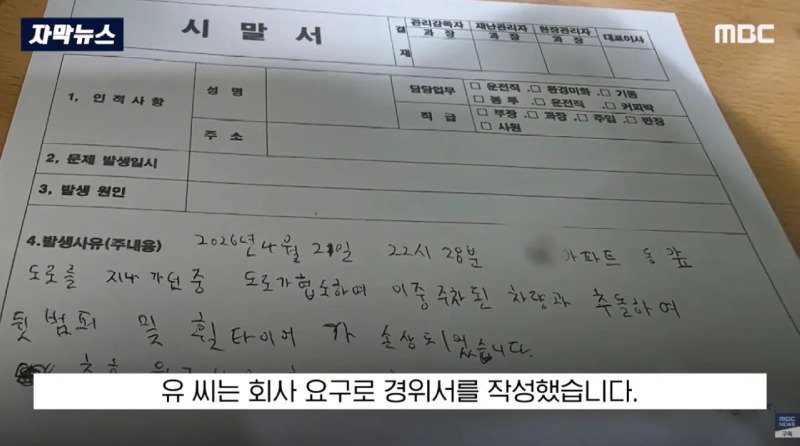 자막뉴스
MBC
시 말 서
결 재
관리감독자 과 장
재난관리자 과 장
현장관리자 과 장
대표이사
1. 인적사항
성 명
담당업무
□ 운전직 .□ 환경미화 .□ 기동
□ 봉 투 .□ 운전직 .□ 커피박
직 급
□ 부장 .□ 과장 .□ 주임 .□ 반장
□ 사원
주 소
2. 문제 발생일시
3. 발생 원인
4.발생사유(주내용) 2026년 4월 21일 22시 28분 아파트 동
도로를 지나 가던 중 도로가 협소하여 이중주차된 차량과 추돌하여
뒷 범퍼 및 휠타이어 가 손상되었습니다.
유 씨는 회사 요구로 경위서를 작성했습니다.
MBC
NEWS
구독